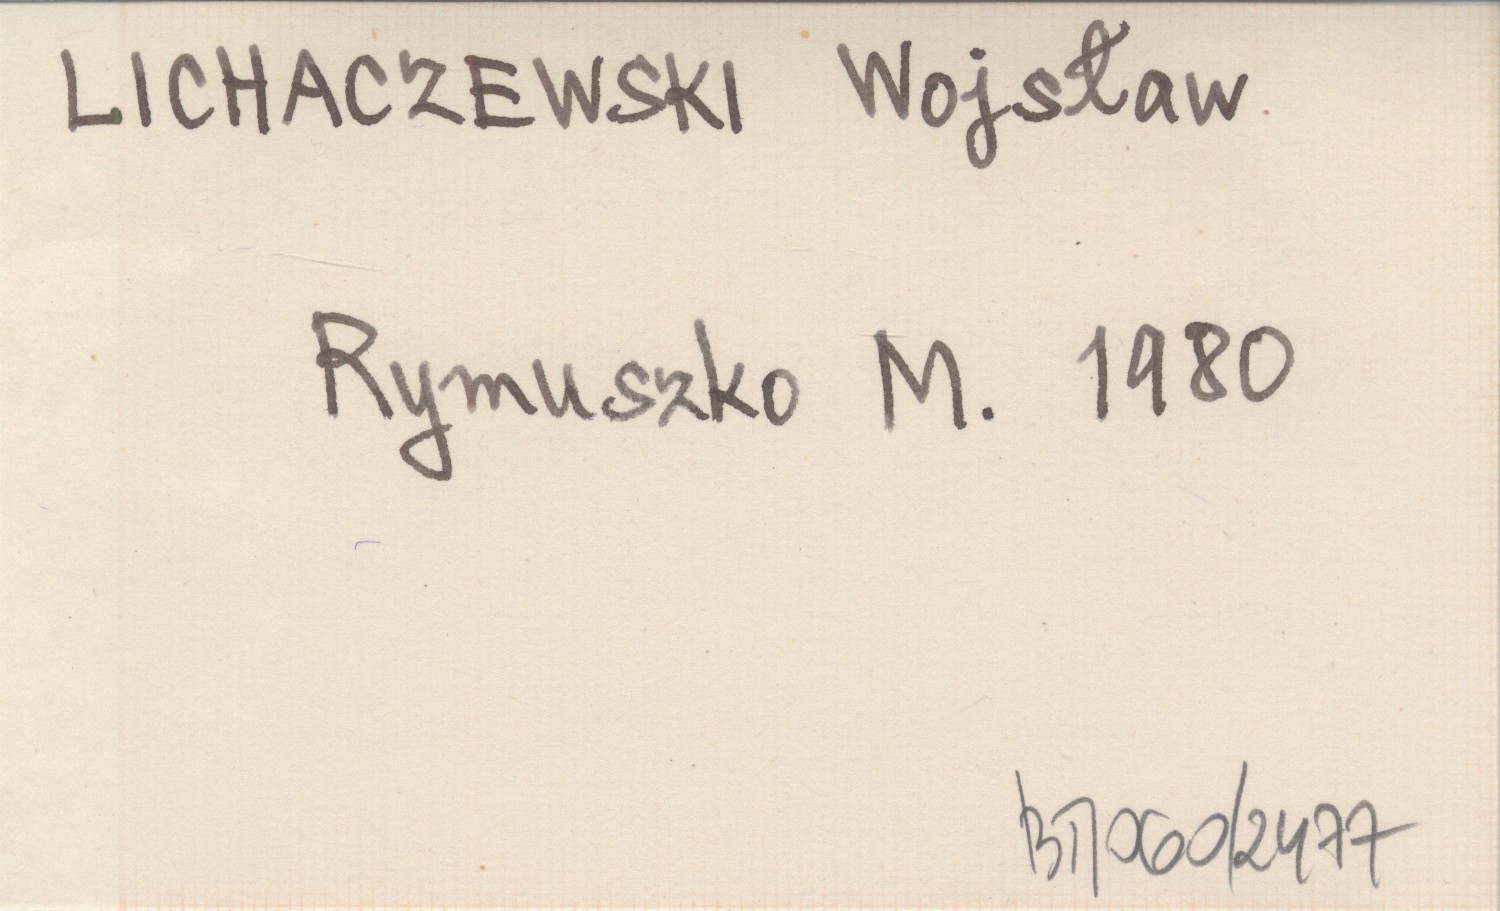 LICHACZEWSKI Wojsław
Rymuszko M. 1980
BT/060/2477